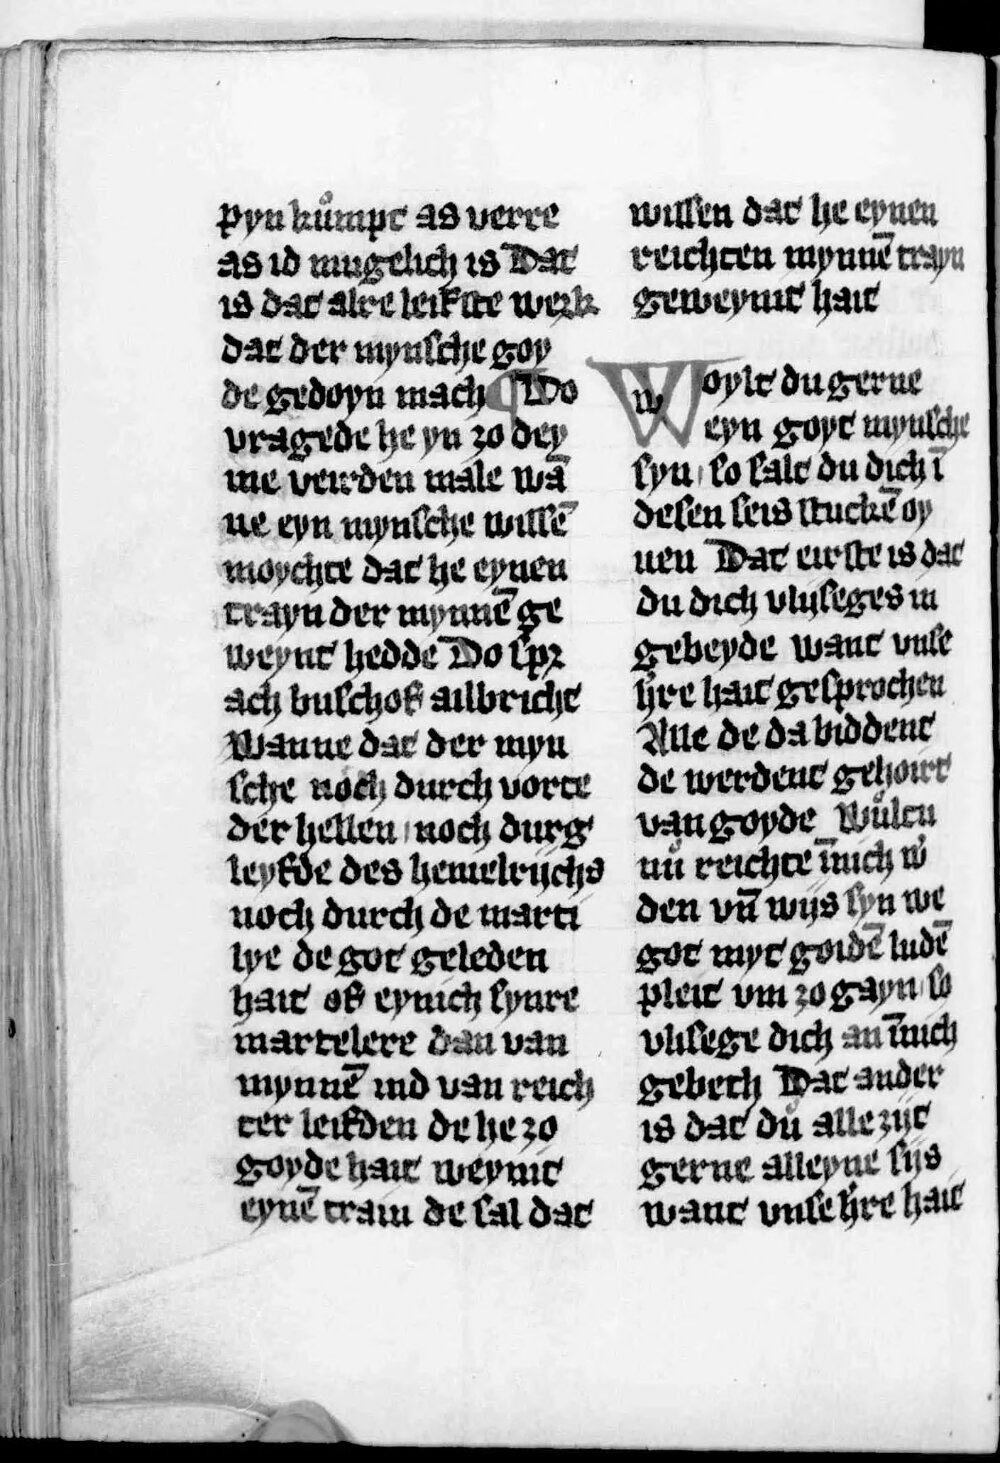 pyn kůmpt as verre
as id mugelich is Dat
is dat alre leifste werk
dat der mynsche goy
de gedoyn mach ¶ Do
vragede he yn zo dey
me veirden male wā
ne eyn mynsche wissē
moychte dat he eynen
trayn der mynnē ge
weynt hedde Do spr
ach buschof ailbricht
Wanne dat der myn
sche noch durch vorte
der hellen noch durg
leyfde des hemelrijchs
noch durch de marti
lye de got geleden
hait of eynich synre
martelere dan van
mynnē ind van reich
ter leifden de he zo
goyde hait weynit
eynē train de sal dat
wissen dat he eynen
reichten mynnē trayn
geweynit hait
Woylt du gerne
eyn goyt mynsche
syn so salt du dich ī
desen seis stuckē oy
uen Dat eirste is dat
du dich vlijseges in
gebeyde want vnse
h̄re hait gesprochen
Alle de da biddent
de werdent gehoirt
van goyde Wůltu
nů reichte īnich w͛
den vn̄ wijs syn we
got myt goidē ludē
pleit vm zo gayn so
vlisege dich an īnich
gebeth Dat ander
is dat dů alle zijt
gerne alleyne sijs
want vnse h̄re hait